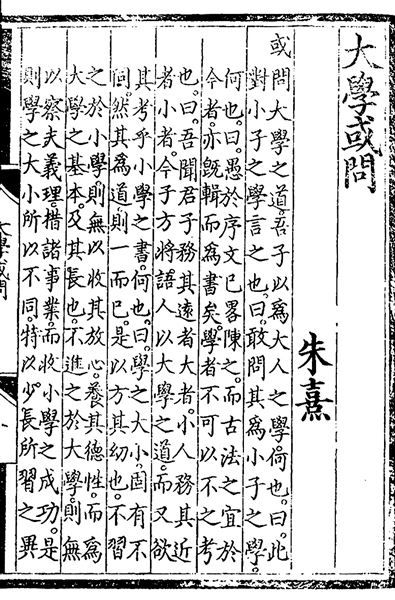 大學或問
朱熹
或問大學之道吾子以爲大人之學何也。曰。此
對小子之學言之也。曰。敢問其爲小子之學。
何也。曰。愚於序文已畧陳之。而古法之宜於
今者。亦旣輯而爲書矣。學者不可以不之考
也。曰。吾聞君子務其遠者大者。小人務其近
者小者。今子方將語人以大學之道。而又欲
其考乎小學之書。何也。曰。學之大小。固有不
同。然其爲道則一而已。是以方其幼也。不習
之於小學。則無以收其放心。養其德性。而爲
大學之基本。及其長也。不進之於大學。則無
以察夫義理。措諸事業。而收小學之成功。是
則學之大小所以不同。特以少長所習之異
大學或問
一